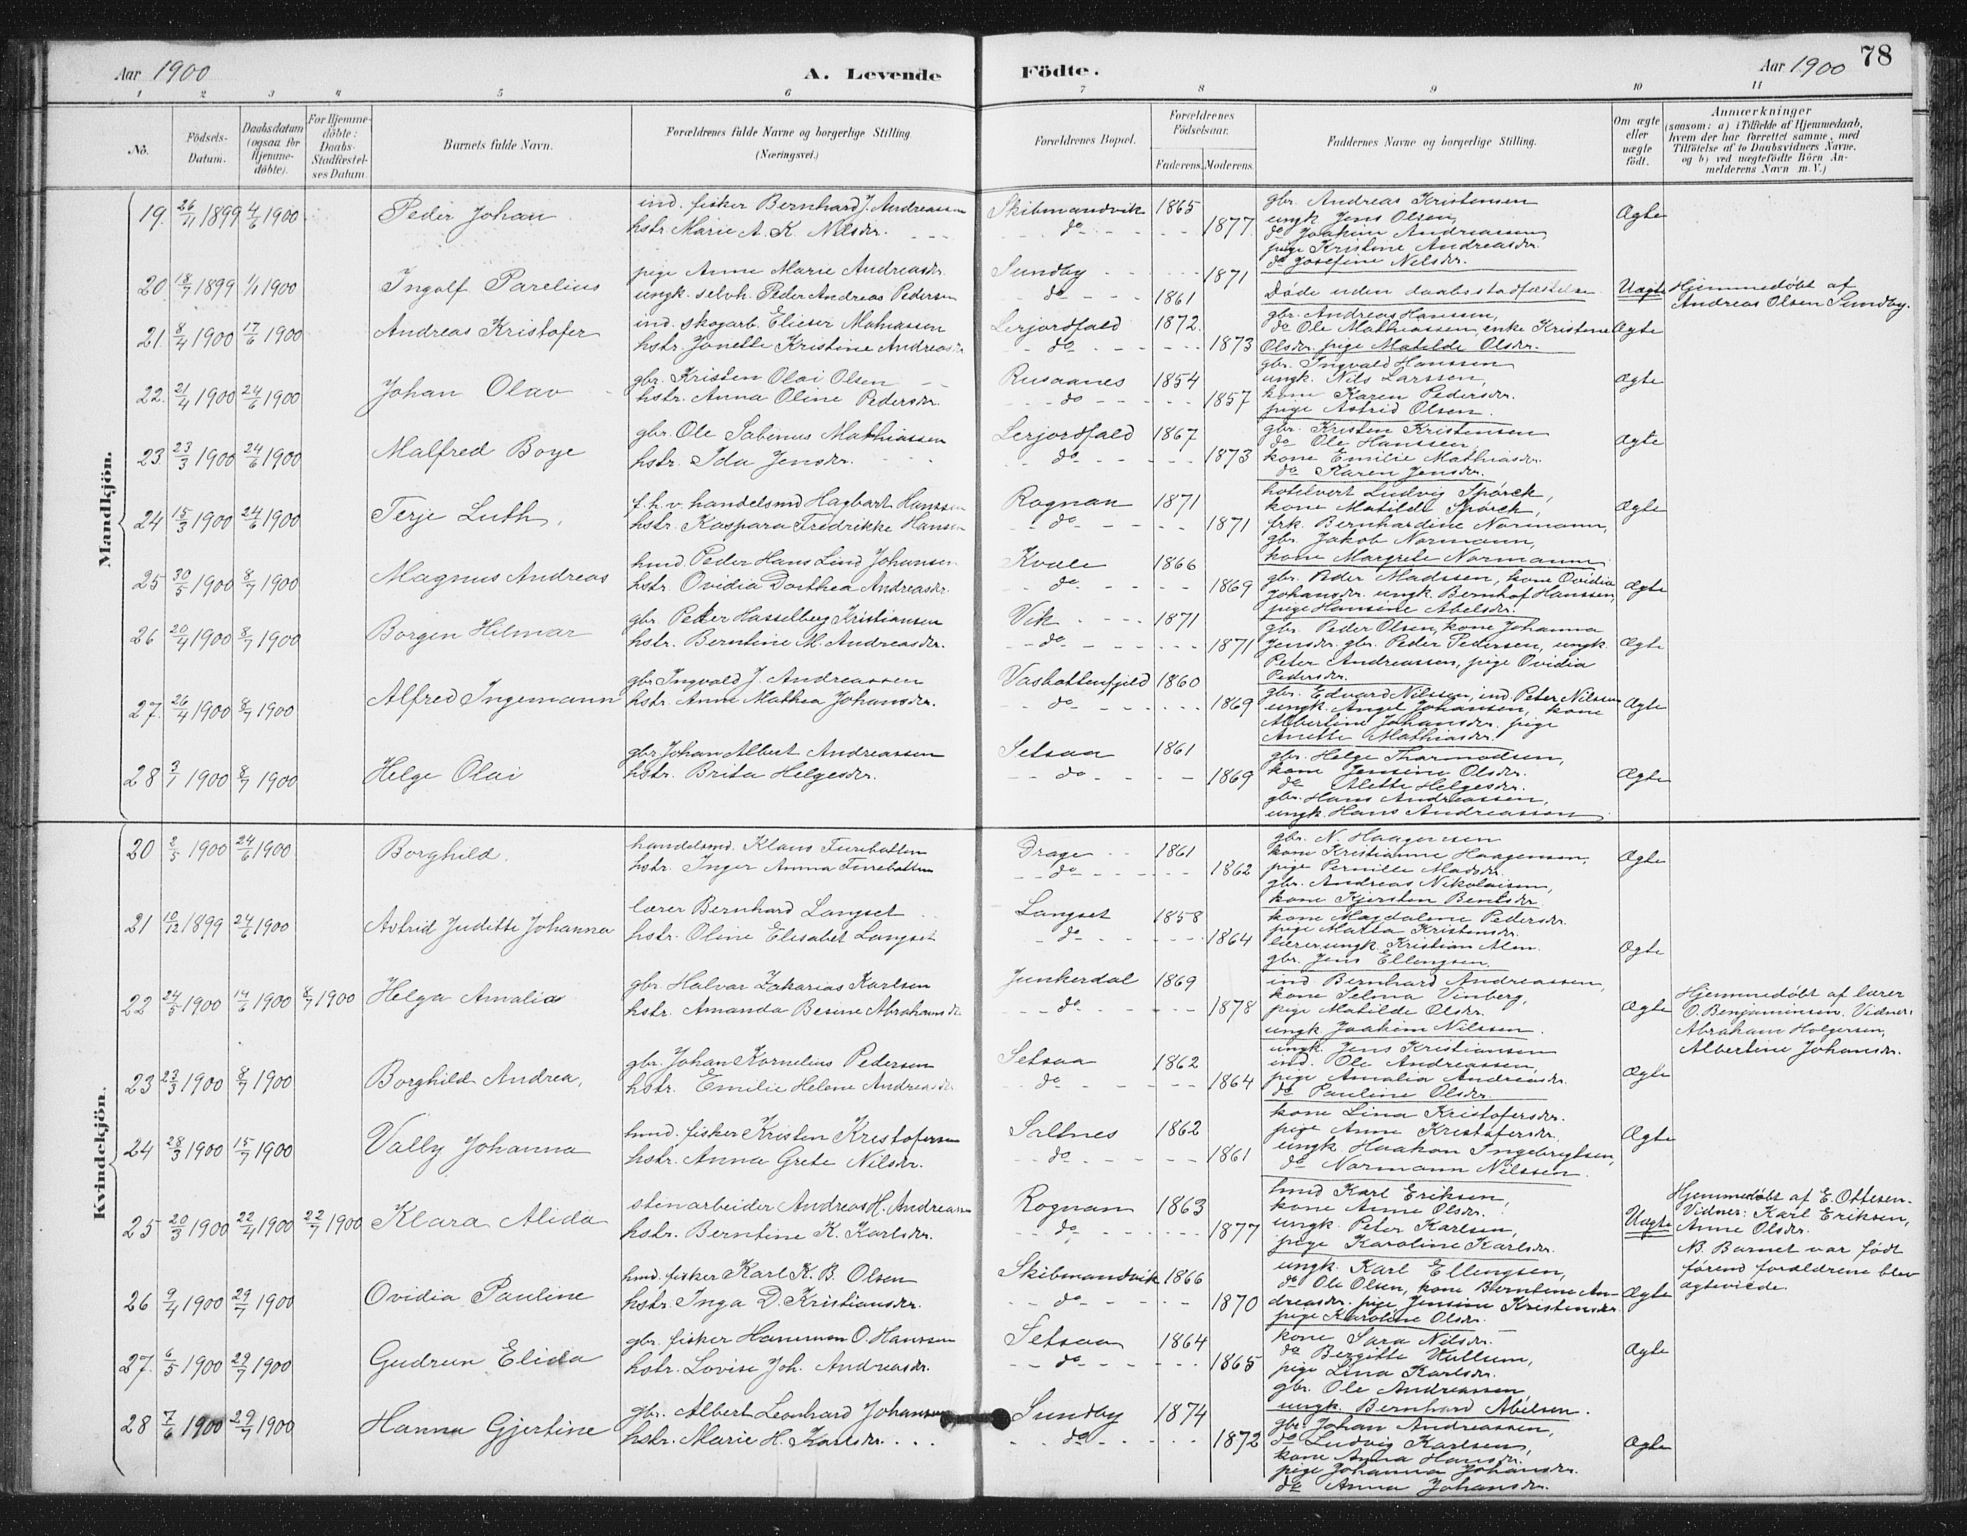 Aar 1900
A. Levende
Födte.
Aar 1900
78
1 2 3 4 5 6 7 8 9 10 11
No.
Födsels-Datum.
Daabsdatum (ogsaa for Hjemmedöbte).
For Hjemmedöbte: Daabs-Stadfæstelses Datum.
Barnets fulde Navn.
Forældrenes fulde Navne og borgerlige Stilling. (Næringsvei.)
Forældrenes Bopæl.
Forældrenes Födselsaar.
Faderens.
Moderens.
Faddernes Navne og borgerlige Stilling.
Om ægte eller uægte födt.
Anmærkninger
(saasom: a) i Tilfælde af Hjemmedaab, hvem der har forrettet samme, med Tilföielse af to Daabsvidners Navne, og b) ved uægtefödte Börn Anmelderens Navn m. V.)
Mandkjön.
19. 26/11 1899 4/6 1900 Peder Johan
ind. fisker Bernhard J. Andreassen
hstr Marie A. K. Nilsdr.
Skibmandvik 1865
do 1877
gbr. Andreas Kristensen
ungk Jens Olsen,
do Joakim Andreassen,
pige Kristine Andreasdr.
do Josefine Nilsdr.
Ægte
20. 18/7 1899 1/1 1900 Ingolf Parelius
pige Anne Marie Andreasdr
ungk. selvh. Peder Andreas Pedersen
Sundby 1871
do 1861
Døde uden daabsstadfæstelse
Uægte
Hjemmedøbt af
Andreas Olsen Sundby.
21. 8/4 1900 17/6 1900 Andreas Kristofer
ind. skogarb. Elieser Mathiassen
hstr. Jonette Kristine Andreasdr
Lerjordfald 1872
do 1873
gbr. Andreas Hanssen,
do Ole Mathiassen, enke Kristine
Olsdr. pige Matilde Olsdr.
Ægte
22. 21/4 1900 24/6 1900 Johan Olav
gbr. Kristen Olai Olsen
hstr. Anna Oline Pedersdr.
Rusaanes 1854
do 1857
gbr. Ingvald Hanssen
ungk. Nils Larssen,
kone Karen Pedersdr.
pige Astrid Olsen.
Ægte
23. 23/3 1900 24/6 1900 Malfred Boye
gbr. Ole Sabinus Mathiassen
hstr. Ida Jensdr.
Lerjordfald 1867
do 1873
gbr. Kristen Kristensen
do Ole Hanssen,
kone Emilie Mathiasdr.
do Karen Jensdr.
Ægte
24 15/3 1900 24/6 1900 Terje Luth,
f. h. v. handelsmd Hagbart Hanssen
hstr. Kaspara Fredrikke Hansen
Rognan 1871
do 1871
hotelvert Ludvig Spørck,
kone Matilde Spørck,
frk. Bernhardine Normann,
gbr. Jakob Normann,
kone Margrete Normann
Ægte
25 30/5 1900 8/7 1900 Magnus Andreas
hmd. Peder Hans Lind Johansen
hstr. Ovidia Dorthea Andreasdr.
Kvale 1866
do 1869
gbr. Peder Madssen, kone Ovidia
Johansdr. ungk. Bernhof Hanssen,
pige Hansine Abelsdr.
Ægte
26 20/4 1900 8/7 1900 Borgen Hilmar
gbr. Peter Hasselberg Kristiansen
hstr. Berntine M. Andreasdr.
Vik 1871
do 1871
gbr. Peder Olsen, kone Johanna
Jensdr. gbr. Peder Pedersen, ungk
Peter Andreassen, pige Ovidia
Pedersdr.
Ægte
27. 26/4 1900 8/7 1900 Alfred Ingemann
gbr. Ingvald J. Andreassen
hstr. Anne Mathea Johansdr.
Vasbottenfjeld 1860
do 1869
gbr. Edvard Nilssen, ind Peter Nilssen
ungk. Angel Johansen, kone
Albertine Johansdr. pige
Anette Mathiasdr.
Ægte
28 3/7 1900 8/7 1900 Helge Olai
gbr Johan Albert Andreassen
hstr. Brita Helgesdr.
Setsaa 1861
do 1869
gbr. Helge Thormodsen,
kone Jensine Olsdr.
do Alette Helgesdr.
gbr. Hans Andreassen,
ungk. Hans Andreassen
Ægte
Kvindekjön.
20 2/5 1900 24/6 1900 Borghild.
handelsmd. Klaus Furebotten
hstr. Inger Anna Furebotten
Drage 1861
do 1862
gbr. N. Haagensen
kone Kristianne Haagensen,
pige Pernille Madsdr.
gbr. Andreas Nikolaisen,
kone Kjersten Bentsdr.
Ægte
21 10/12 1899 24/6 1900 Astrid Juditte Johanna
lærer Bernhard Langset
hstr. Oline Elisabet Langset
Langset 1858
do 1864
kone Magdalene Pedersdr.
pige Maria Kristensdr.
lærer, ungk. Kristian Alm.
gbr. Jens Ellengsen.
Ægte
22 24/5 1900 14/6 1900 8/7 1900 Helga Amalia
gbr Halvar Zakarias Karlsen
hstr. Amanda Besine Abrahamsdr
Junkerdal 1869
do 1878
ind Bernhard Andreassen,
kone Selma Vinberg,
pige Matilde Olsdr.
ungk Joakim Nilssen.
Ægte
Hjemmedøbt af lærer
O. Benjaminsen. Vidner:
Abraham Holgersen,
Albertine Johansdr.
23 23/3 1900 8/7 1900 Borghild Andrea,
gbr. Johan Kornelius Pedersen
hstr. Emilie Helene Andreasdr
Setsaa 1862
do 1864
ungk. Jens Kristiansen
ind. Ole Andreassen,
pige Amalia Andreasdr.
do Pauline Olsdr
Ægte
24 28/3 1900 15/7 1900 Vally Johanna
hmd. fisker Kristen Kristofersen
hstr. Anna Grete Nilsdr.
Saltnes 1862
do 1861
kone Lina Kristofersdr.
pige Anne Kristofersdr.
ungk. Haakon Ingebrigtsen,
do Normann Nilssen.
Ægte
25 20/3 1900 22/4 1900 22/7 1900 Klara Alida
stenarbeider Andreas H. Andreassen
hstr. Berntine K. Karlsdr.
Rognan 1863
do 1877
hmd Karl Eriksen,
kone Anne Olsdr.
ungk. Peter Karlsen,
pige Karoline Karlsdr.
Uægte
Hjemmedøbt af E. Ottesen.
Vidner: Karl Eriksen,
Anne Olsdr.
NB. Barnet var født
førend forældrene blev
ægteviede.
26 9/4 1900 29/7 1900 Ovidia Pauline
hmd. fisker Karl K. B. Olsen
hstr. Inga D. Kristiansdr.
Skibmandvik 1866
do 1870
ungk. Karl Ellengsen,
do Ole Olsen, kone Berntine An-
dreasdr. pige Jensine Kristensdr.
pige Karoline Olsdr.
Ægte
27. 6/5 1900 29/7 1900 Gudrun Elida
gbr. fisker Hammon O. Hanssen
hstr. Lovise Joh. Andreasdr.
Setsaa 1864
do 1865
kone Sara Nilsdr.
do Bergitte Kullum,
pige Lina Karlsdr.
gbr. Ole Andreassen
ungk. Bernhard Abelsen.
Ægte
28 7/6 1900 29/7 1900 Hanna Gjertine
gbr. Albert Leonhard Johansen
hstr. Marie H. Karlsdr.
Sundby 1874
do 1872
gbr. Johan Andreassen,
do Ludvig Karlsen,
kone Anna Hansdr.
pige Johanna Johansdr.
do Anna Johansdr.
Ægte